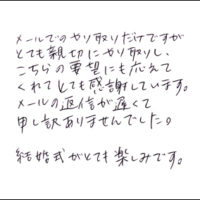 メールでのやり取りだけですが
とても親切にやり取りし、
こちらの要望にも応えて
くれてとても感謝しています。
メールの返信が遅くて
申し訳ありませんでした。
結婚式がとても楽しみです。